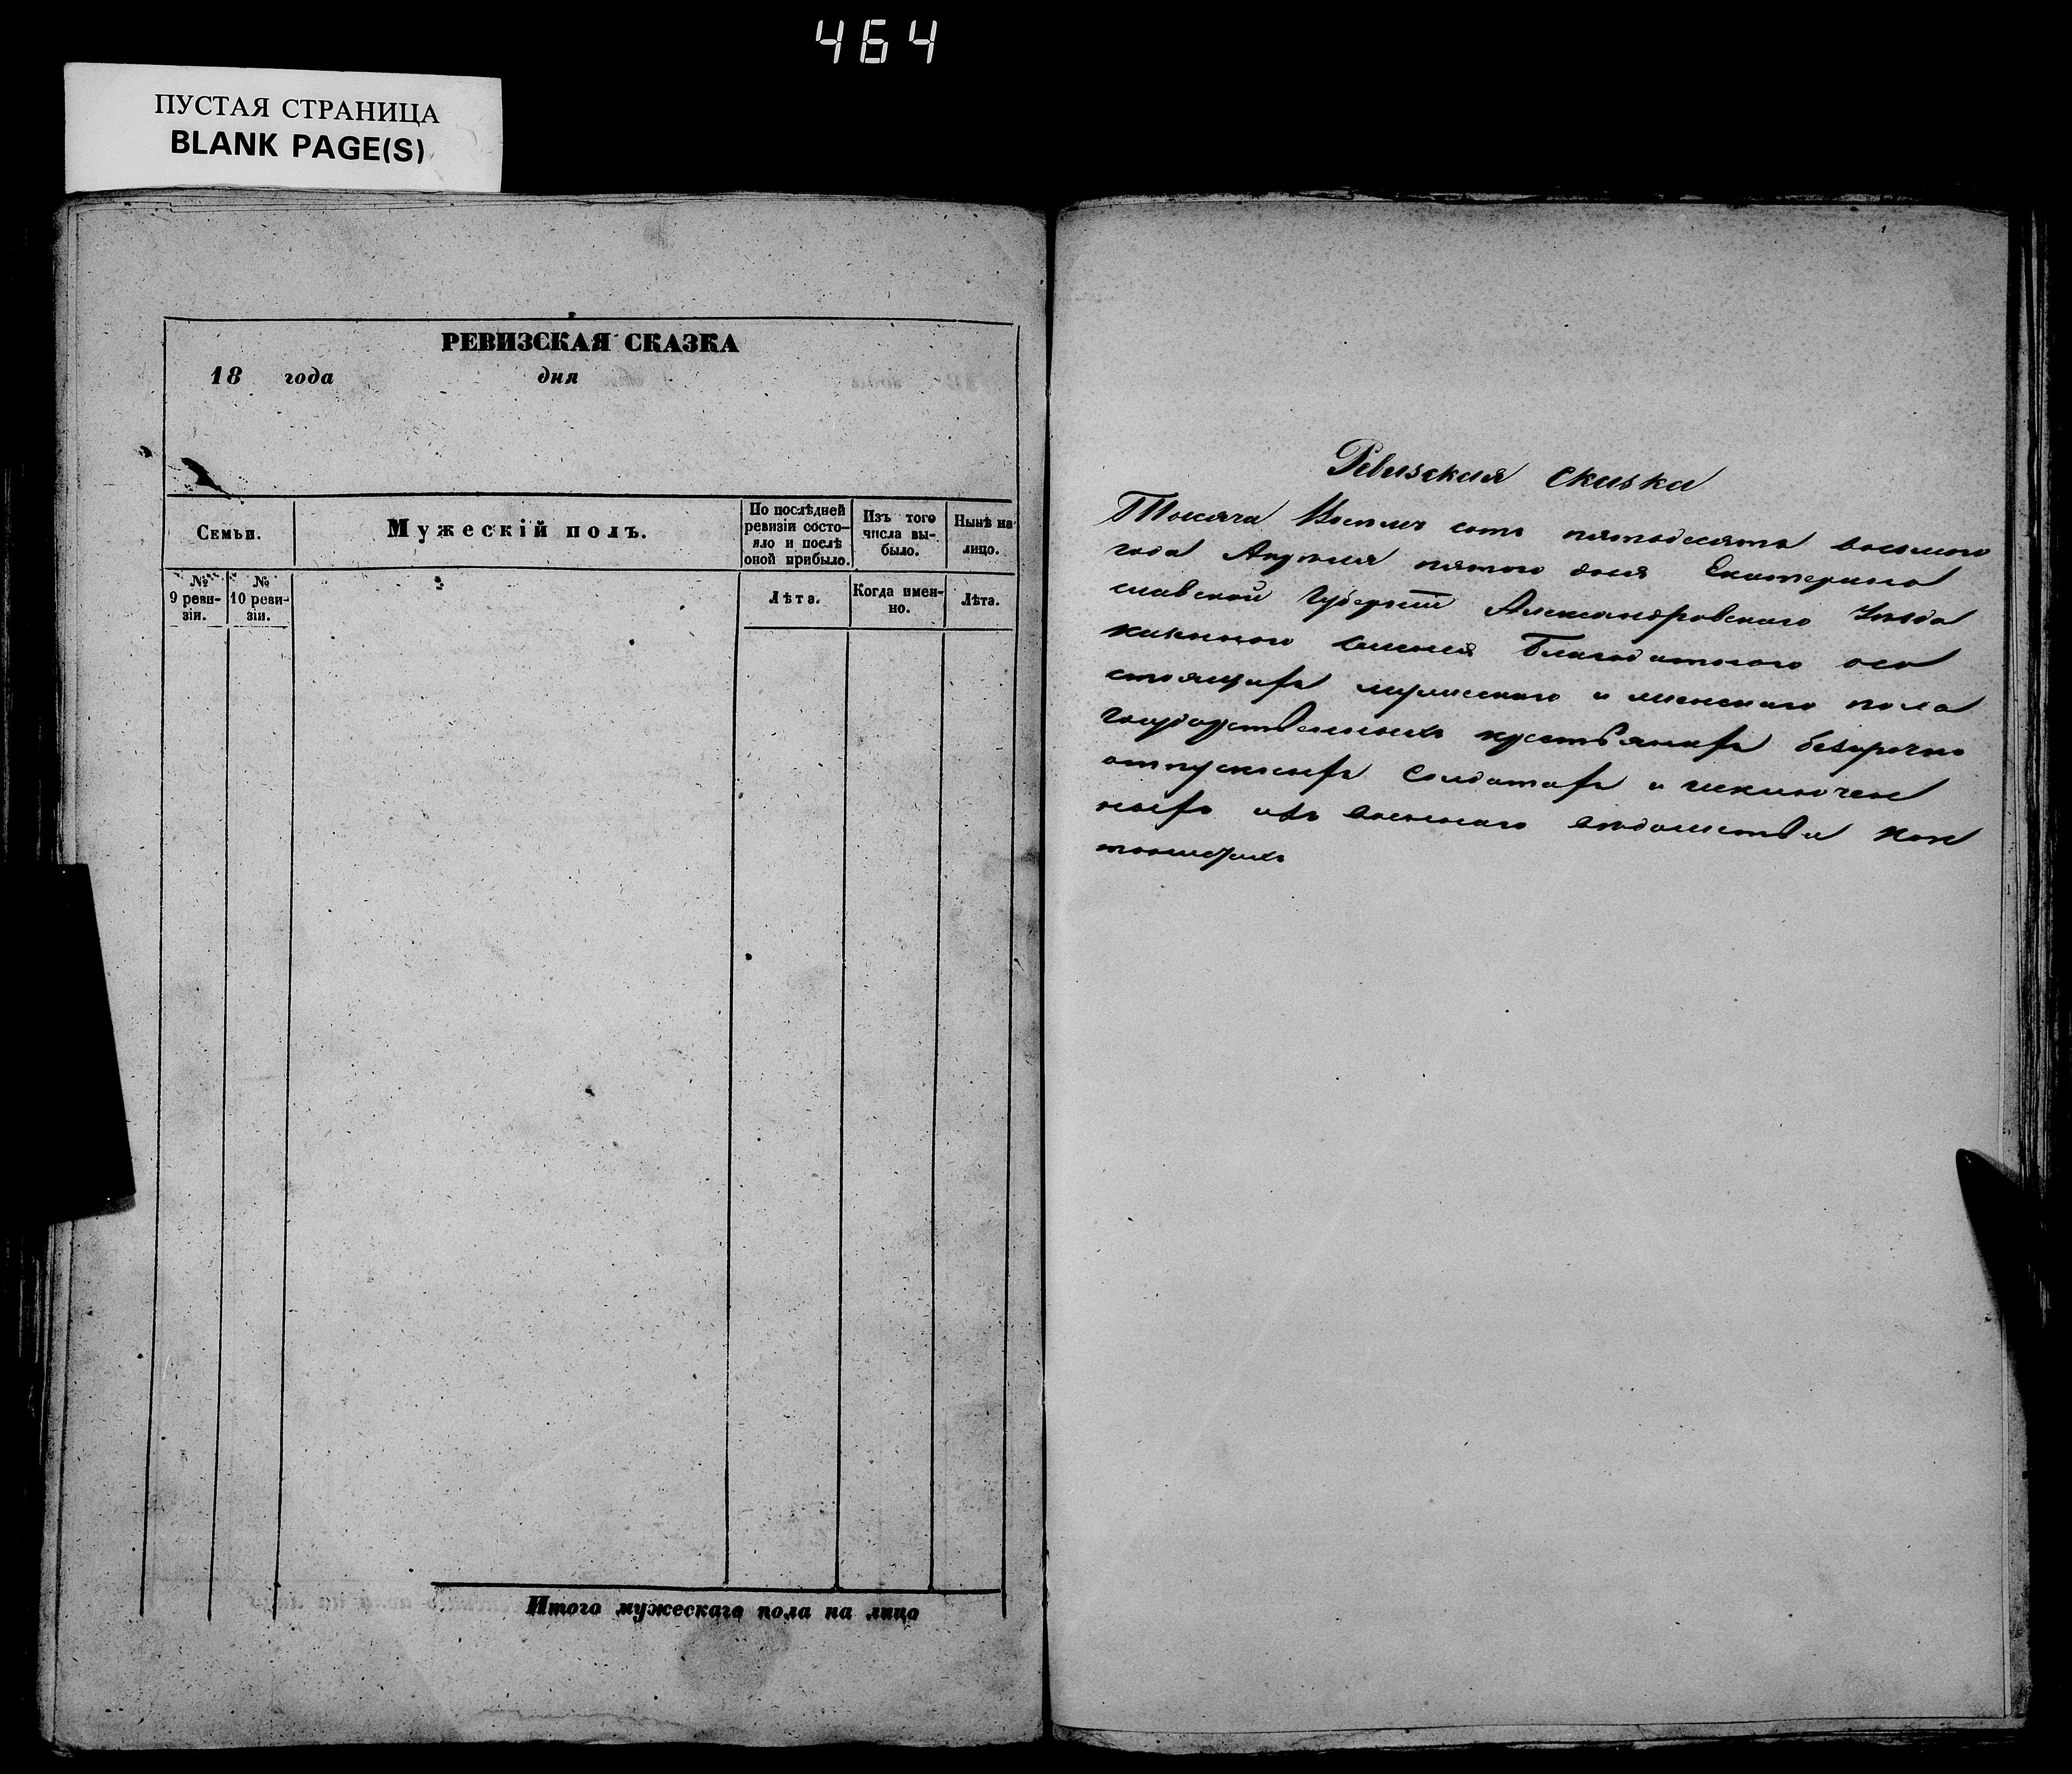 464
ПУСТАЯ СТРАНИЦА
BLANK PAGE(S)
РЕВИЗСКАЯ СКАЗКА
18 года дня
Семьи.
Мужескій полъ.
По послѣдней
ревизіи состо-
яло и послѣ
оной прибыло.
Изъ того
числа вы-
было.
Нынѣ на
лицо.
№
9 реви-
зіи.
№
10 реви-
зіи.
Лѣта.
Когда имен-
но.
Лѣта.
Итого мужескаго пола на лицо
Ревизская сказка
Тысяча Восемь сотъ пятьдесятъ восьмого
года Апреля пятого дня Екатерино
славской Губерніи Александровского Уезда
казенного селенія Благодатного осо
стоящихъ мужескаго и женскаго пола
государственныхъ крестьянахъ безсрочно
отпускныхъ солдатахъ и исключен
ныхъ изъ военнаго вѣдомства кан
тонистахъ